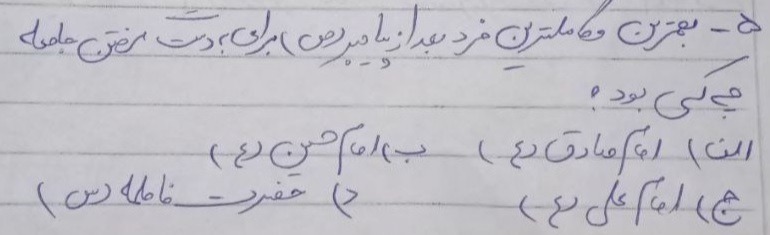 ۵- بهترین و کاملترین فرد بعد از پیامبر (ص) برای بدست گرفتن جامعه
چه کسی بود؟
الف) امام صادق (ع) ب) امام حسن (ع)
ج) امام علی (ع) د) حضرت فاطمه (س)